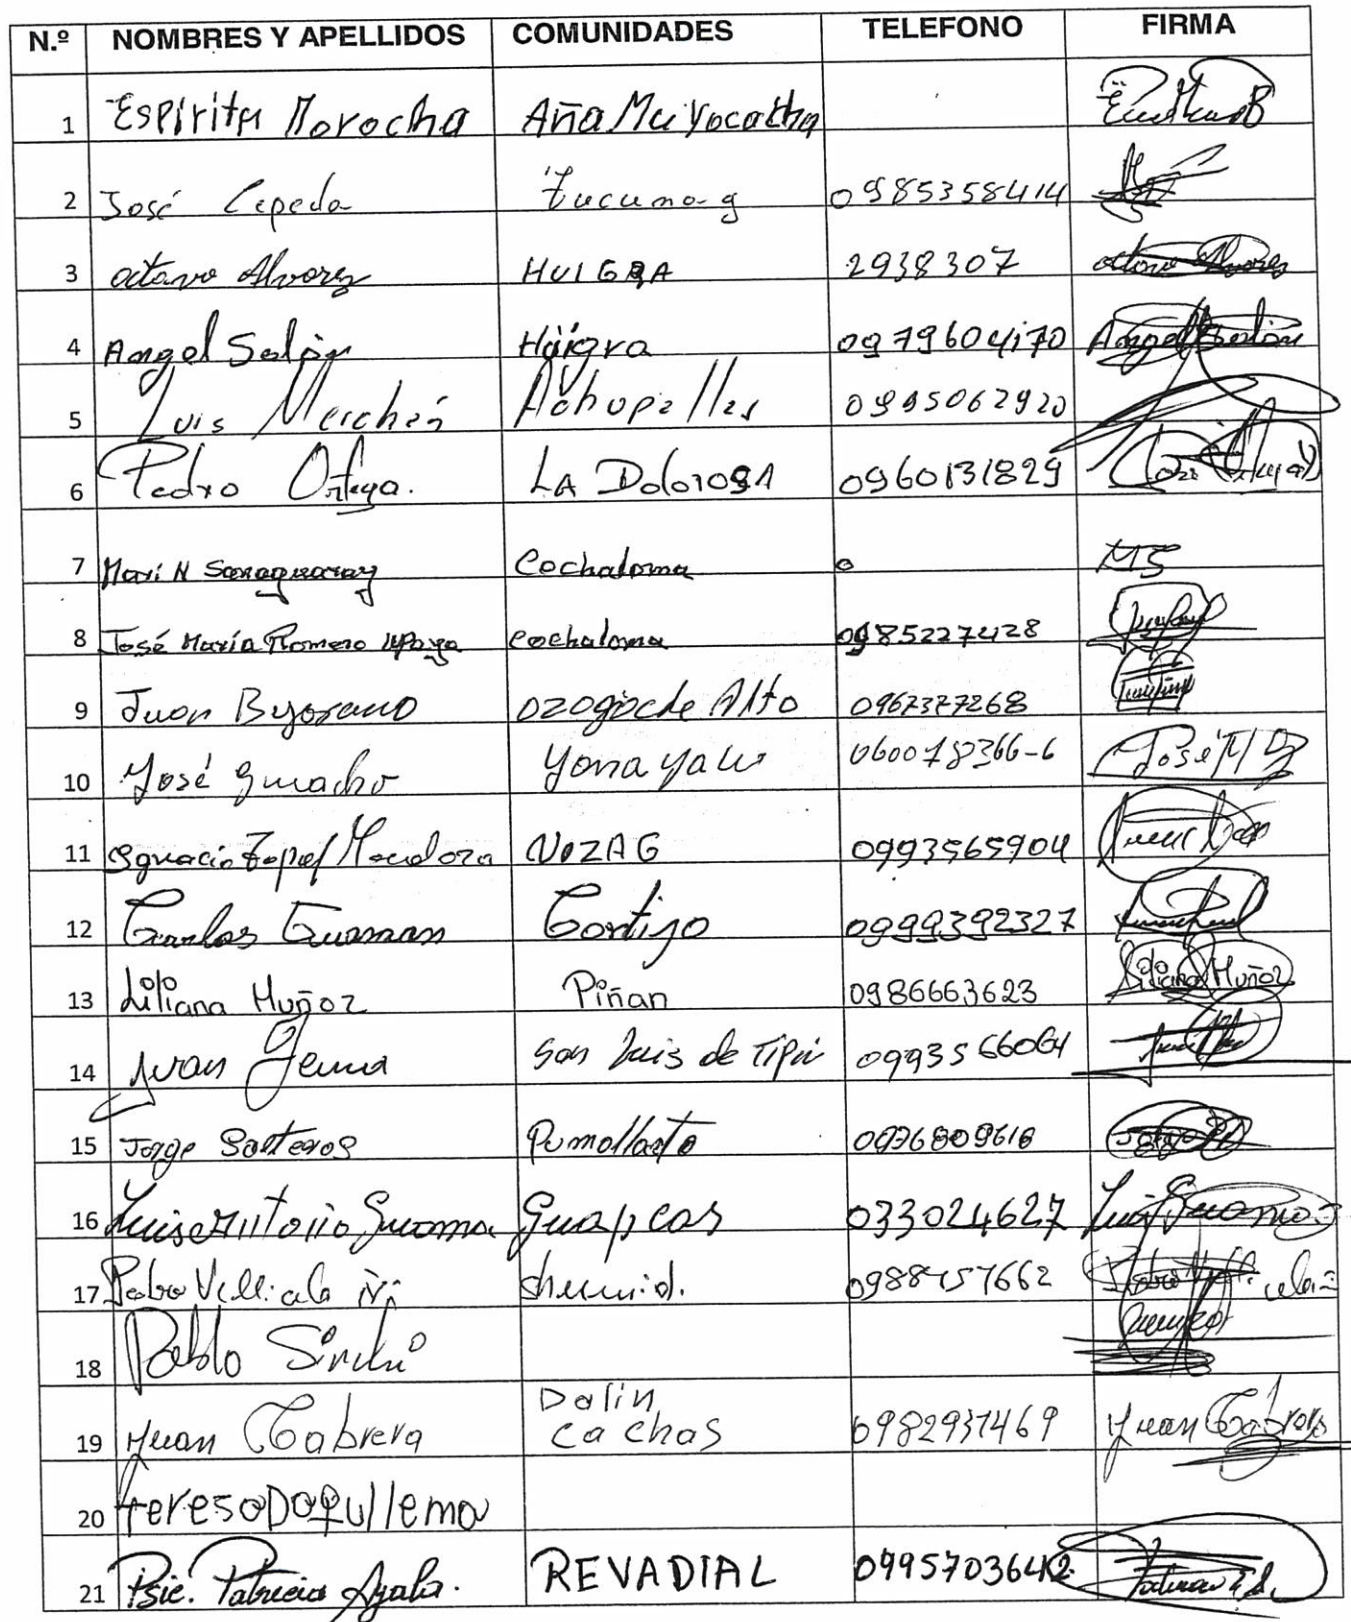 N.º NOMBRES Y APELLIDOS COMUNIDADES TELEFONO FIRMA
1 Espiritu Morocha Aña Muyocatha
2 José Cepeda tucumag 0985358414
3 octavo Alvarez HUIGRA 2938307 octavo Alvarez
4 Angel Selón Huigra 0979604170 Angel Selón
5 Luis Merchán Achupallas 0995062920
6 Pedro Ortega. LA DOLOROSA 0960131829
7 Mari N Saxaguaray Cochaloma o MS
8 José María Romero cochaloma 0985227428
9 Juan Byorano ozogoche Alto 0967377268
10 José guacho Yona yacu 060078366-6 José
11 Ignacio Mendoza NIZAG 0993565904
12 Carlos Guaman 0999392327
13 Liliana Muñoz Piñan 0986663623 Liliana Muñoz
14 Juan San Luis de Tipin 0993566064
15 Jorge Santeros Pumallacta 0996809618
16 Luis Antonio Guaman Guapcas 033024627 Luis Guaman
17 Pabro 0988457662
18 Pablo Sinchi
19 Juan Cabrera Dalin
cachas 0982937469 Juan Cabrera
20 teresa Daquilema
21 Psic. Patricia Ayala. REVADIAL